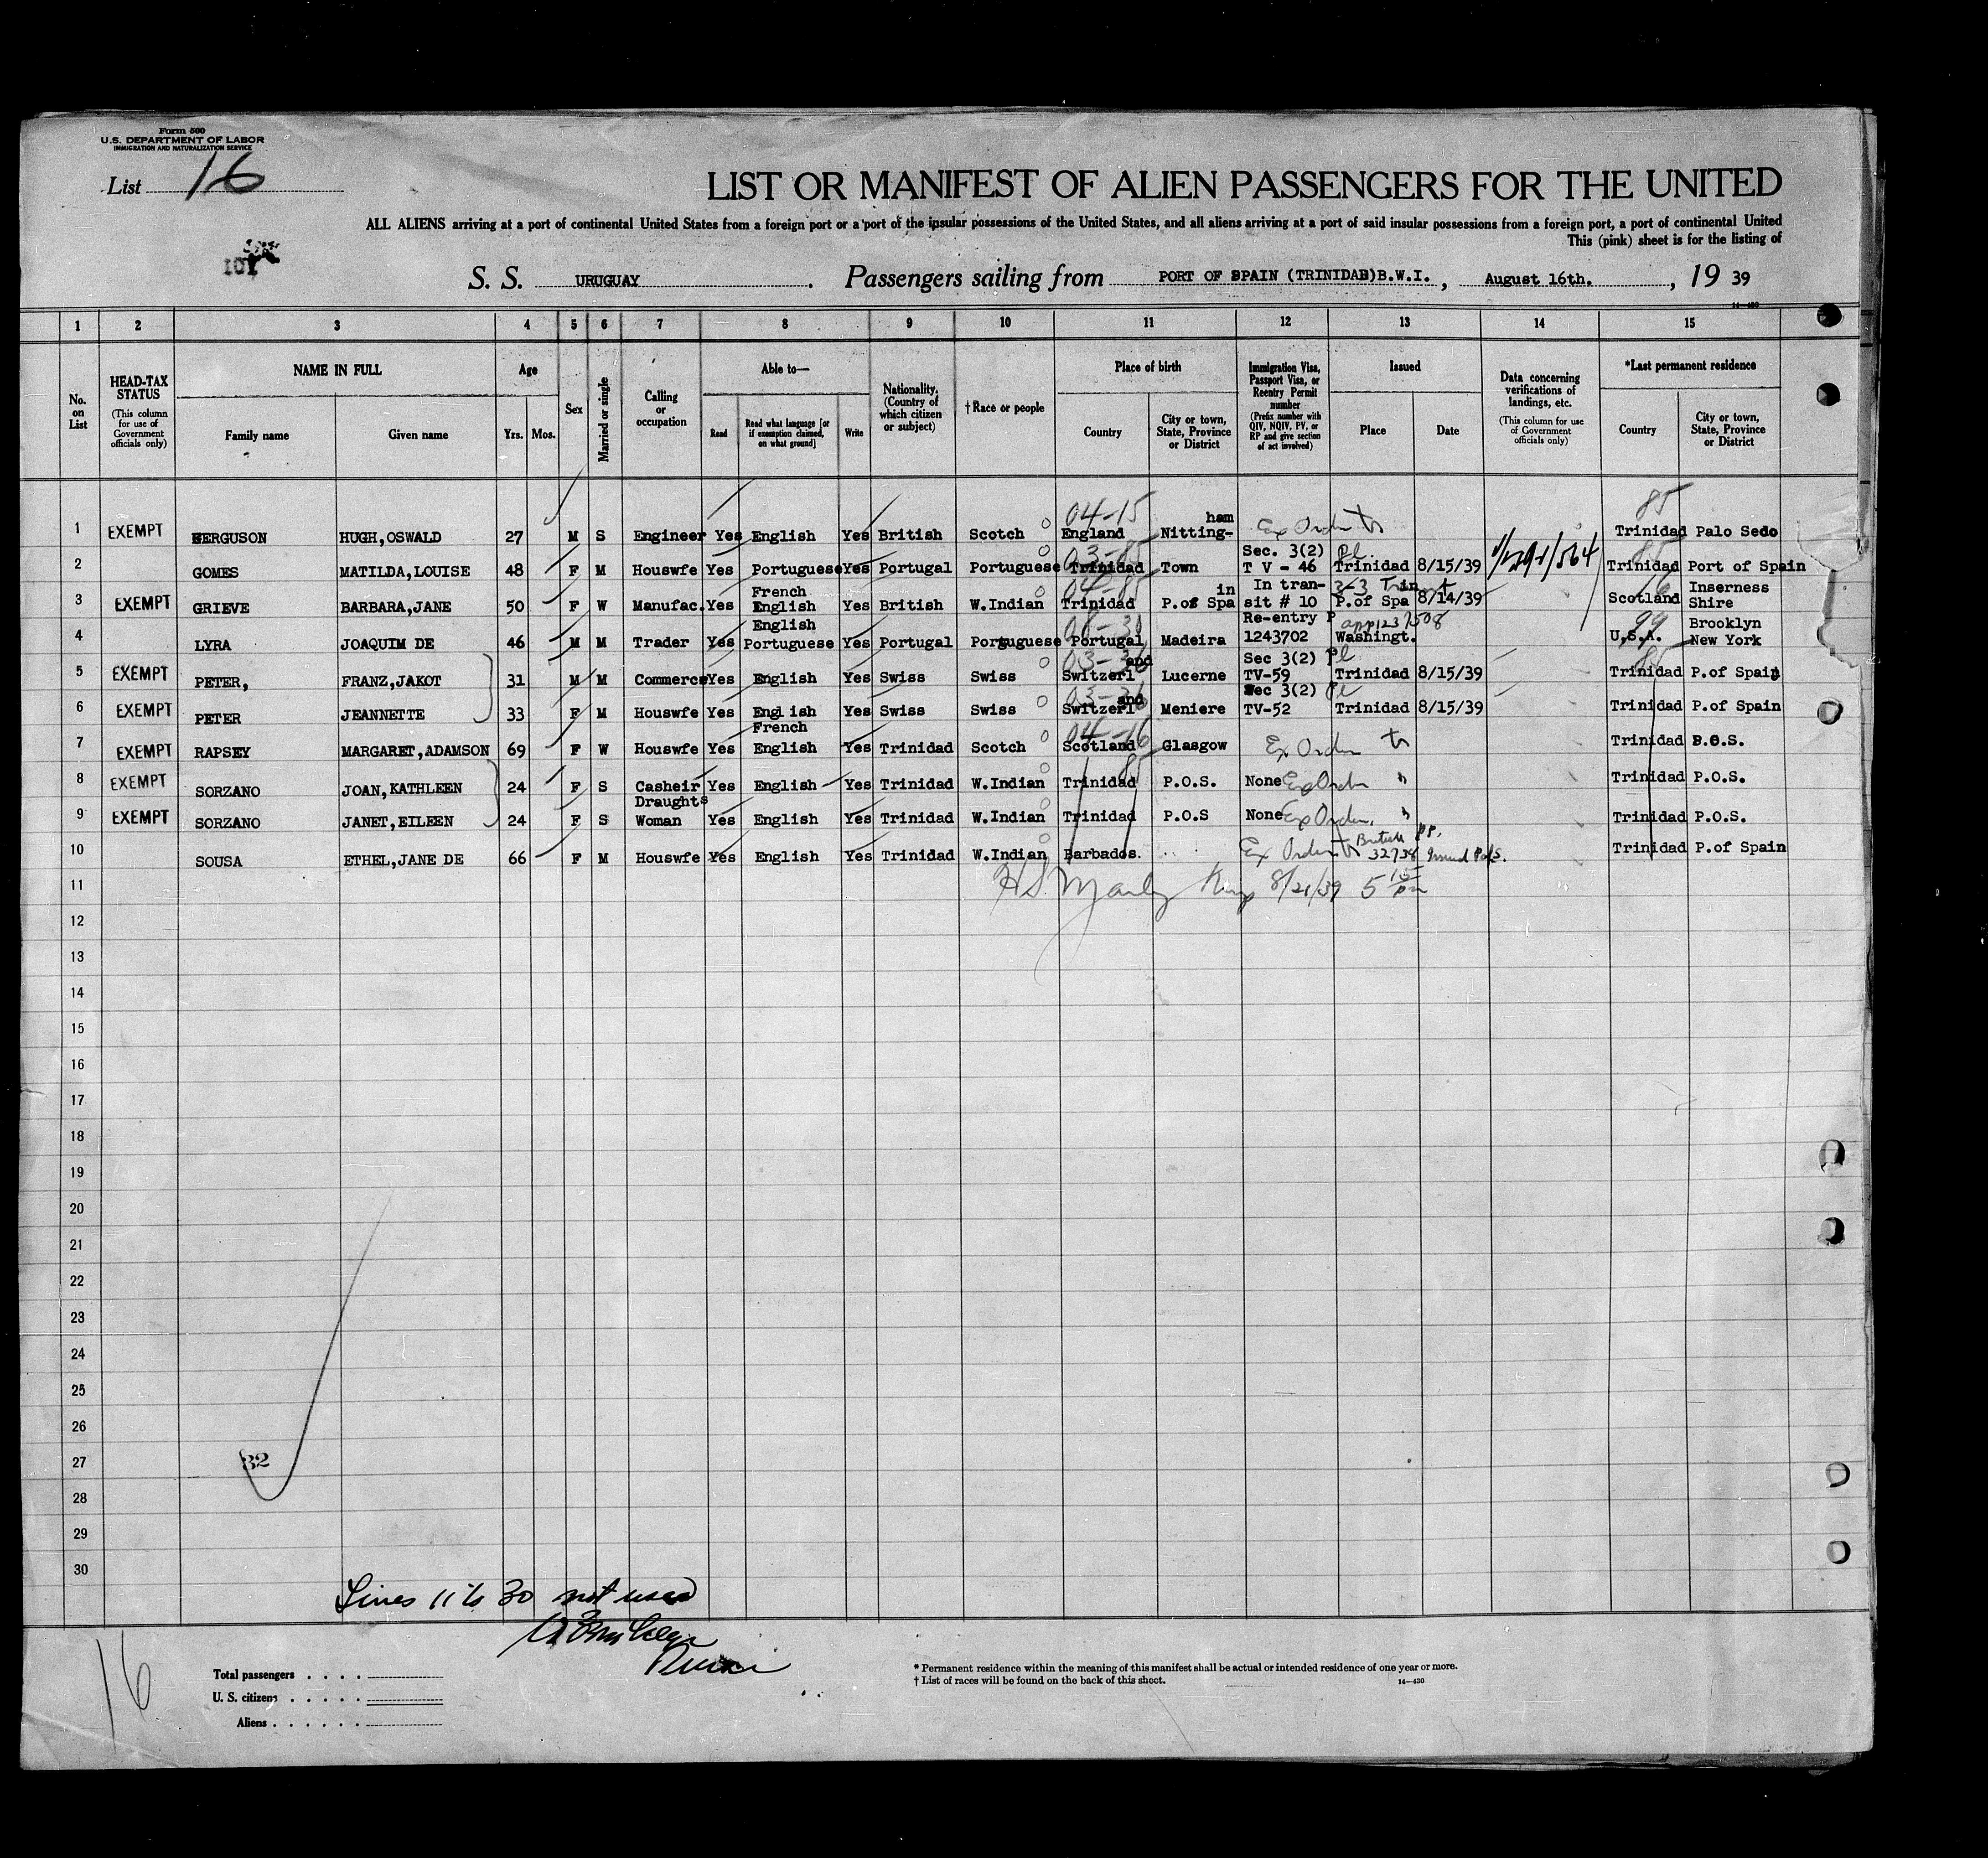 Form 500
U.S. DEPARTMENT OF LABOR
IMMIGRATION AND NATURALIZATION SERVICE
List 16
LIST OR MANIFEST OF ALIEN PASSENGERS FOR THE UNITED
ALL ALIENS arriving at a port of continental United States from a foreign port or a port of the insular possessions of the United States, and all aliens arriving at a port of said insular possessions from a foreign port, a port of continental United
This (pink) sheet is for the listing of
101
S. S. URUGUAY. Passengers sailing from PORT OF SPAIN (TRINIDAD)B.W.I., August 16th., 19 39
14—430
1 2 3 4 5 6 7 8 9 10 11 12 13 14 15
No. on List
HEAD-TAX STATUS (This column for use of Government officials only)
NAME IN FULL
Family name Given name
Age
Yrs. Mos.
Sex
Married or single
Calling or occupation
Able to—
Read Read what language [or if exemption claimed, on what ground] Write
Nationality, (Country of which citizen or subject)
†Race or people
Place of birth
Country City or town, State, Province or District
Immigration Visa, Passport Visa, or Reentry Permit number (Prefix number with QIV, NQIV, PV, or RP and give section of act involved)
Issued
Place Date
Data concerning verifications of landings, etc. (This column for use of Government officials only)
*Last permanent residence
Country City or town, State, Province or District
04-15 ham 85
1 EXEMPT FERGUSON HUGH,OSWALD 27 M S Engineer Yes English Yes British Scotch England Nitting- Ex Order Trinidad Palo Sedo
03-85 Sec. 3(2) Pl. 85
2 GOMES MATILDA,LOUISE 48 F M Houswfe Yes Portuguese Yes Portugal Portuguese Trinidad Town T V - 46 Trinidad 8/15/39 Trinidad Port of Spain
French 04-85 in In tran- 3-3 Trin 16 Inserness
3 EXEMPT GRIEVE BARBARA,JANE 50 F W Manufac. Yes English Yes British W.Indian Trinidad P.of Spa sit # 10 P.of Spa 8/14/39 Scotland Shire
English Re-entry P 99 Brooklyn
4 LYRA JOAQUIM DE 46 M M Trader Yes Portuguese Yes Portugal Portuguese Portugal Madeira 1243702 Washingt. U.S.A. New York
03-36 and Sec 3(2) Pl 85
5 EXEMPT PETER, FRANZ,JAKOT 31 M M Commerce Yes English Yes Swiss Swiss Switzerl Lucerne TV-59 Trinidad 8/15/39 Trinidad P.of Spain
03-36 and Sec 3(2) Pl
6 EXEMPT PETER JEANNETTE 33 F M Houswfe Yes English Yes Swiss Swiss Switzerl Meniere TV-52 Trinidad 8/15/39 Trinidad P.of Spain
French 04-16
7 EXEMPT RAPSEY MARGARET,ADAMSON 69 F W Houswfe Yes English Yes Trinidad Scotch Scotland Glasgow Ex Order Trinidad P.O.S.
85
8 EXEMPT SORZANO JOAN,KATHLEEN 24 F S Casheir Yes English Yes Trinidad W.Indian Trinidad P.O.S. None Ex Order " Trinidad P.O.S.
Draughts
9 EXEMPT SORZANO JANET,EILEEN 24 F S Woman Yes English Yes Trinidad W.Indian Trinidad P.O.S None Ex Order. " Trinidad P.O.S.
British PP.
10 SOUSA ETHEL,JANE DE 66 F M Houswfe Yes English Yes Trinidad W.Indian Barbados. Ex Order 32738 Issued P.o.S. Trinidad P.of Spain
11 8/21/39 5 15 pm
12
13
14
15
16
17
18
19
20
21
22
23
24
25
26
27 32
28
29
30
Lines 11 to 30 not used
16
Total passengers
U. S. citizens
Aliens
* Permanent residence within the meaning of this manifest shall be actual or intended residence of one year or more.
† List of races will be found on the back of this sheet.
14—430